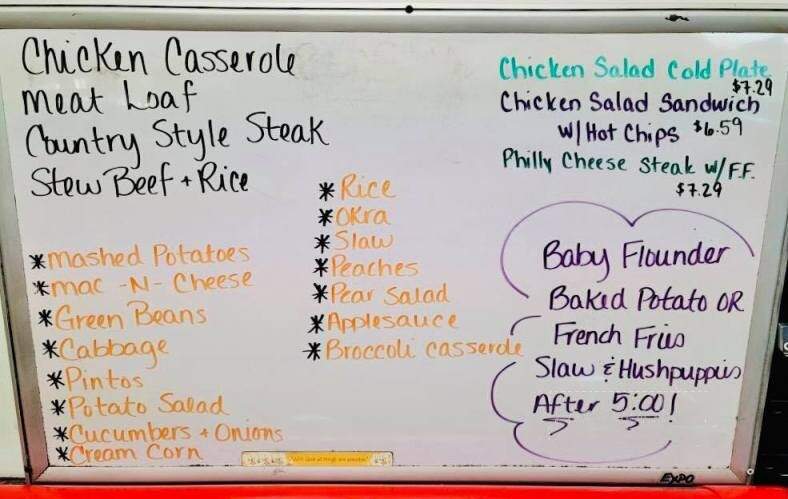 Chicken Casserole
Meat Loaf
Country Style Steak
Stew Beef + Rice
*Mashed Potatoes
*mac -N- Cheese
*Green Beans
*Cabbage
*Pintos
*Potato Salad
*Cucumbers + Onions
*Cream Corn
*Rice
*Okra
*Slaw
*Peaches
*Pear Salad
*Applesauce
*Broccoli casserole
Chicken Salad Cold Plate
$7.29
Chicken Salad Sandwich
w/Hot Chips $6.59
Philly Cheese Steak w/F.F.
$7.29
Baby Flounder
Baked Potato OR
French Fries
Slaw & Hushpuppies
After 5:00!
EXPO